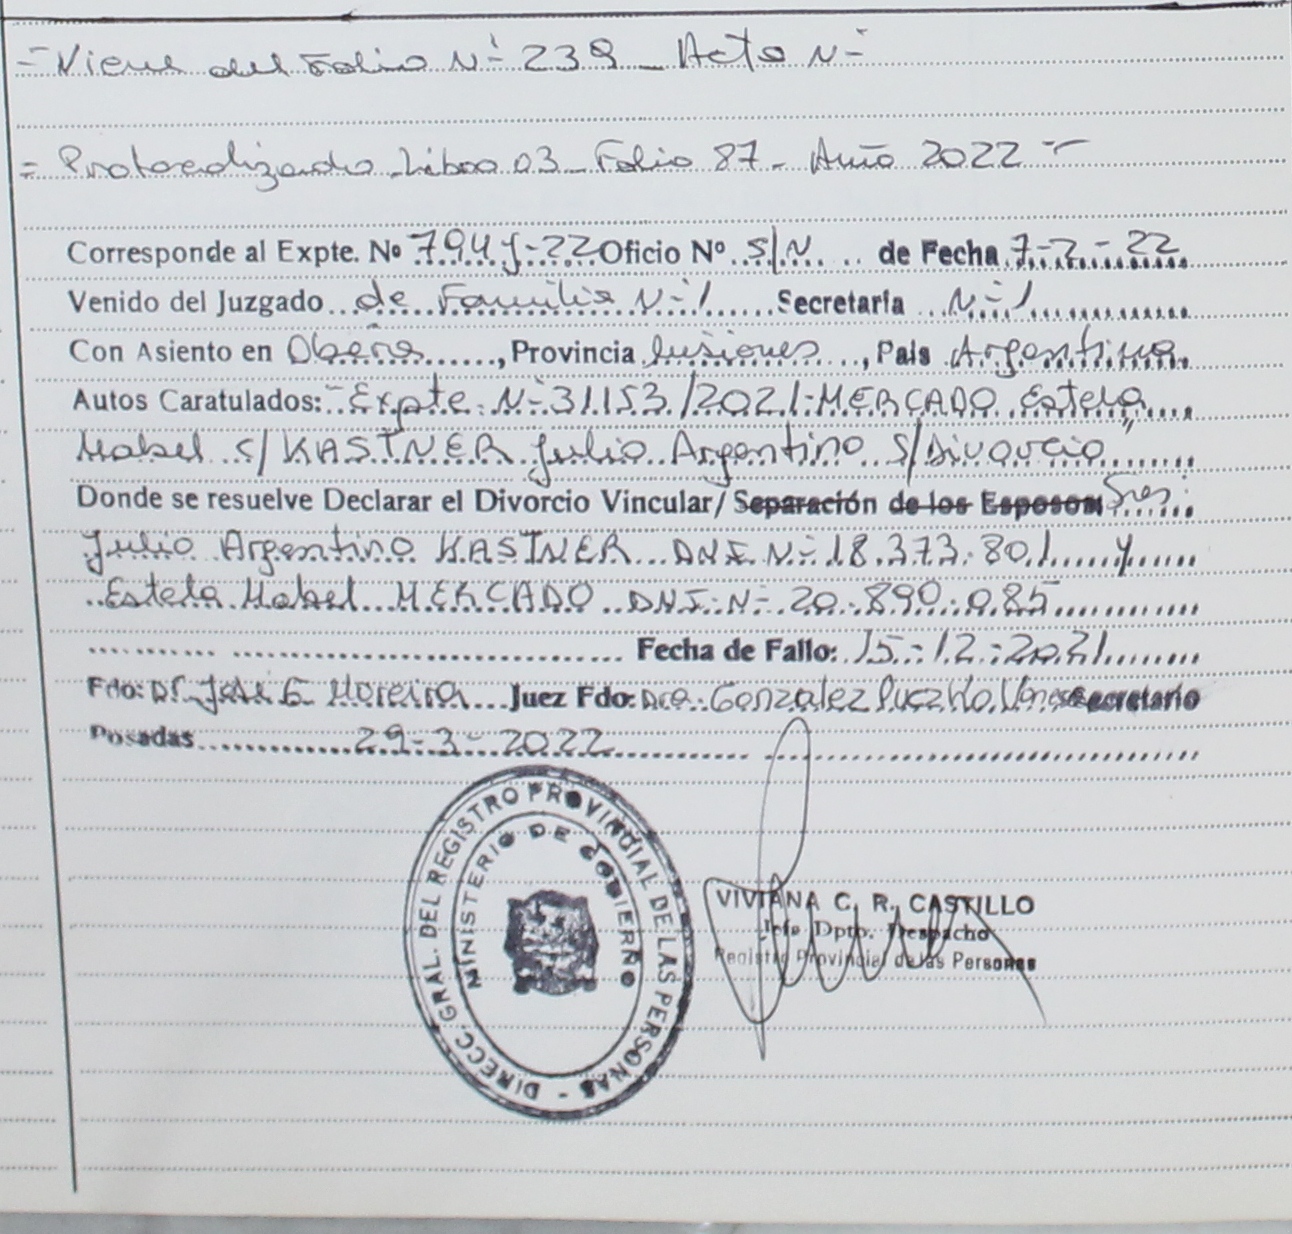 = Viene del Folio N° 239 _ Acta N° =
= Protocolizado Libro 03 _ Folio 87 _ Año 2022 =
Corresponde al Expte. Nº 794 J-22 Oficio Nº S/N de Fecha 7-2-22
Venido del Juzgado de Familia N° 1 Secretaría N° 1
Con Asiento en Oberá, Provincia Misiones, País Argentina
Autos Caratulados: "Expte. N° 31153/2021. MERCADO Estela
Mabel c/ KASTNER Julio Argentino S/ Divorcio"
Donde se resuelve Declarar el Divorcio Vincular/ Separación de los Esposos: Sres.
Julio Argentino KASTNER DNI. N° 18.373.801 y
Estela Mabel MERCADO DNI. N° 20.890.085
Fecha de Fallo: 15-12-2021
Fdo: Dr. José G. Moreira Juez Fdo: Dra. Gonzalez Secretario
Posadas 29-3-2022
DIRECC. GRAL. DEL REGISTRO PROVINCIAL DE LAS PERSONAS -
MINISTERIO DE GOBIERNO
VIVIANA C. R. CASTILLO
Jefe Dpto. Despacho
Registro Provincial de las Personas